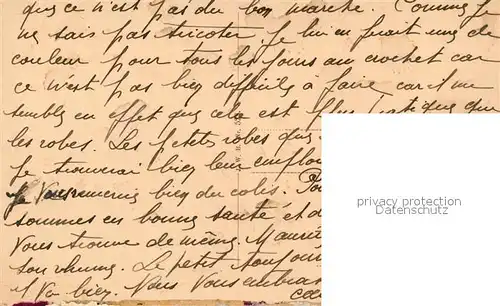 que ce n'est pas du bon marché. Comme je
ne sais pas tricoter, je lui en ferait une de
couleur pour tous les jours au crochet car
ce n'est pas bien difficile à faire car il me
semble en effet que cela est plus pratique que
les robes. Les petites robes que
je trouverai bien leur emploi
Je vous remercie bien du colis. Pou
sommes en bonne santé et d
vous trouve de même. Maurice
son rhume. Le petit toujours
va bien. Nous vous embras
privacy protection
Datenschutz